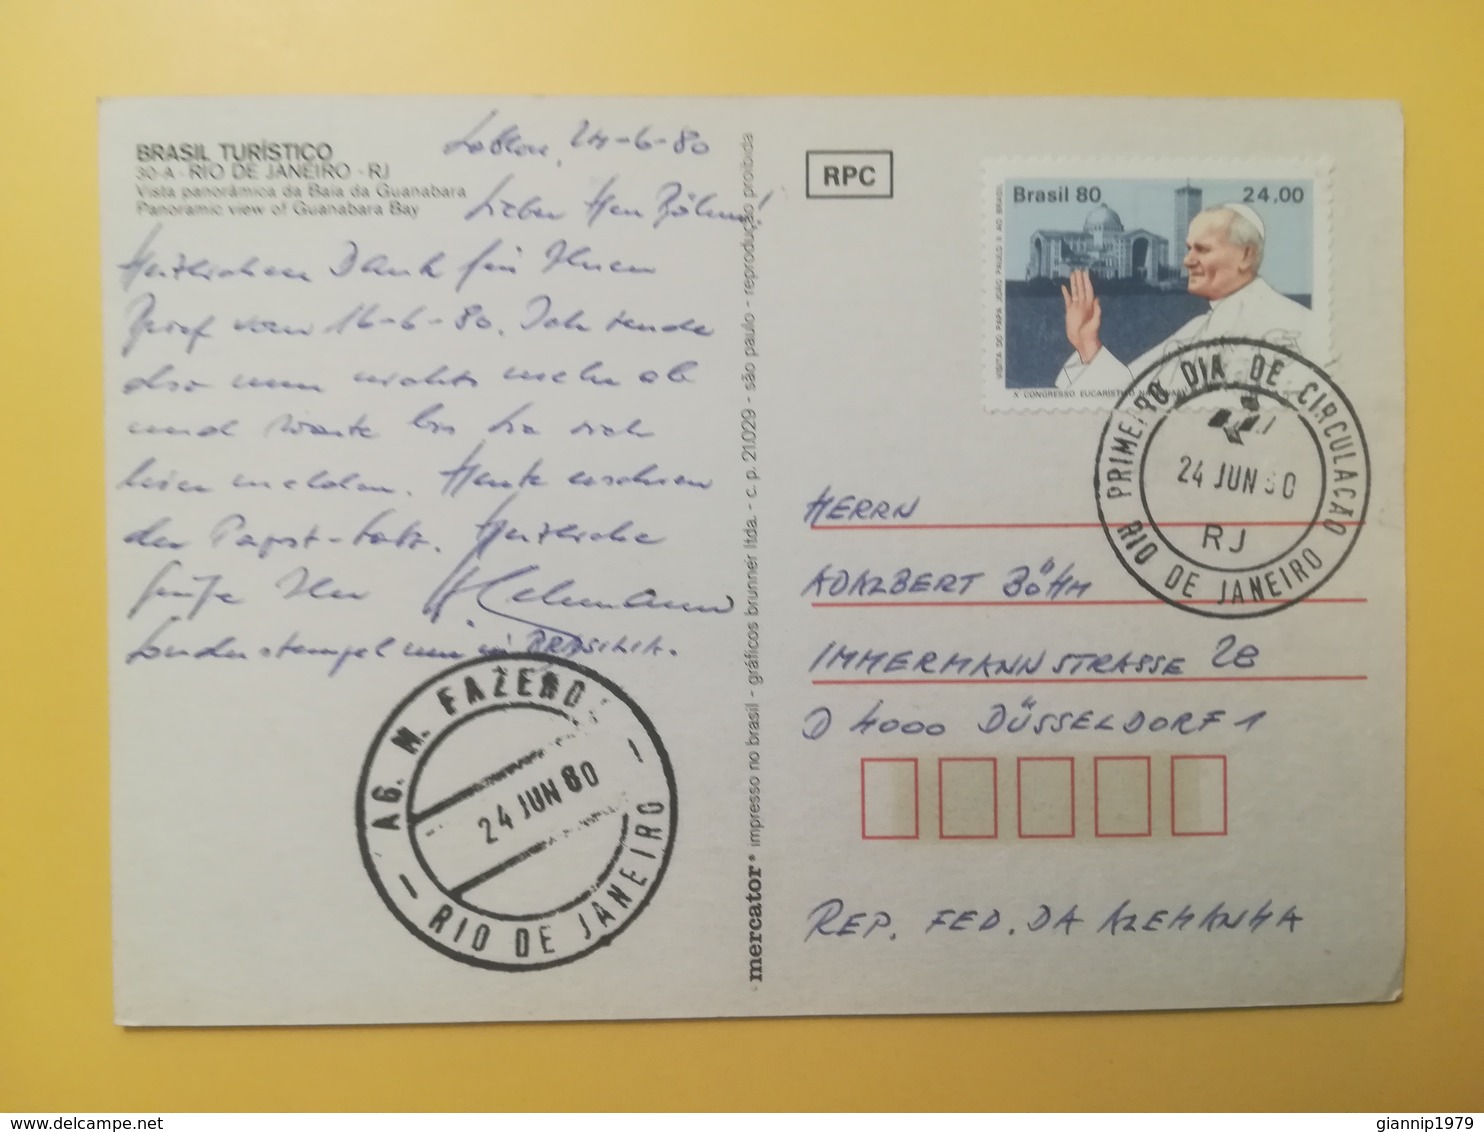 BRASIL TURÍSTICO
30-A - RIO DE JANEIRO - RJ
Vista panorâmica da Baia da Guanabara
Panoramic view of Guanabara Bay
Leblon, 24-6-80
Lieber Herr Böhm!
Herzlichen Dank für Ihren
Brief vom 16-6-80. Ich sende
also nun nichts mehr ab
und warte bis Sie sich
hier melden. Heute erschien
der Papst-Satz. Herzliche
Grüße Ihr
Sonderstempel nur in BRASILIA.
AG. M. FAZEND
24 JUN 80
RIO DE JANEIRO
mercator® impresso no brasil - gráficos brunner ltda. - c. p. 21.029 - são paulo - reprodução proibida
RPC
Brasil 80 24,00
VISITA DO PAPA JOÃO PAULO II AO BRASIL
X CONGRESSO EUCARÍSTICO
PRIMEIRO DIA DE CIRCULAÇÃO
24 JUN 80
RJ
RIO DE JANEIRO
HERRN
ADALBERT BÖHM
IMMERMANNSTRASSE
D 4000 DÜSSELDORF 1
REP. FED. DA ALEMANHA
giannip1979